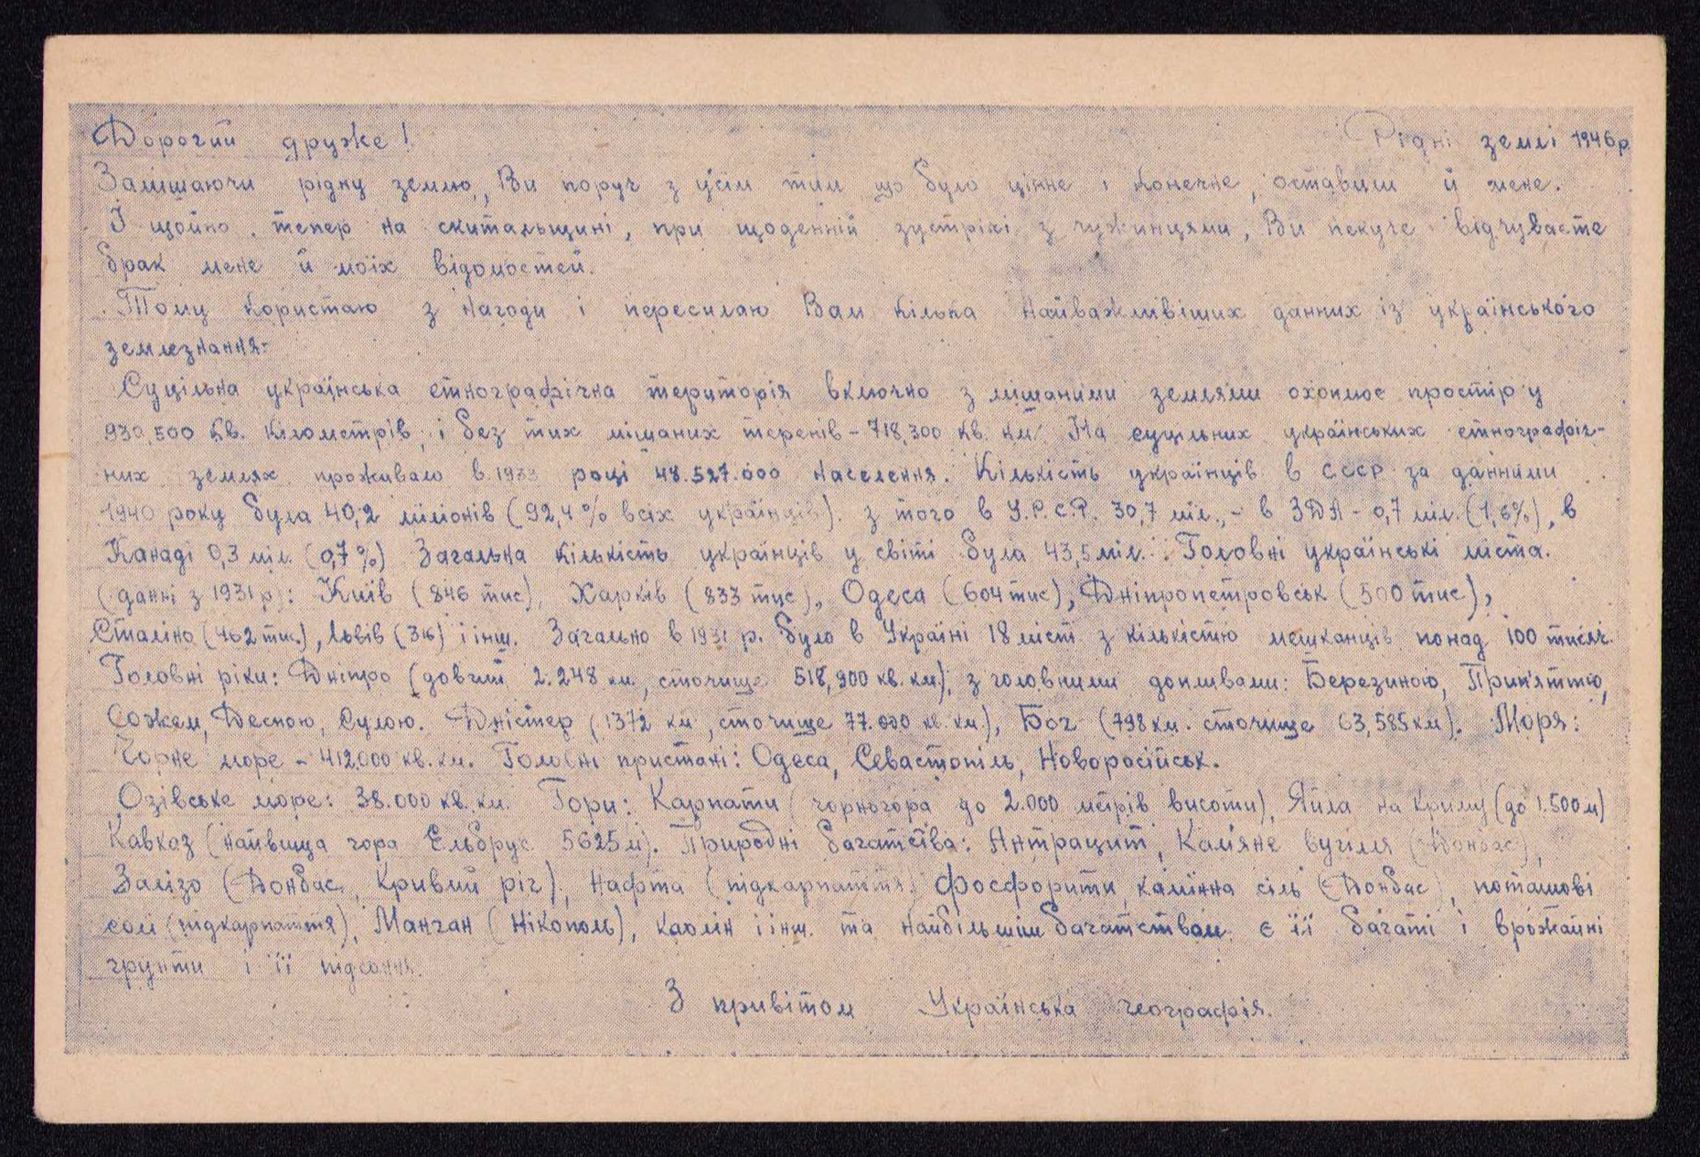 Дорогий друже! Рідні землі 1946 р
Залишаючи рідну землю, Ви поруч з усім тим що було цінне і конечне, оставили й мене.
І щойно тепер на скитальщині, при щоденній зустрічі з чужинцями, Ви пекуче відчуваєте
брак мене й моїх відомостей.
Тому користаю з нагоди і пересилаю Вам кілька найважливіших данних із українського
землезнання:
Суцільна українська етнографічна територія включно з мішаними землями охоплює простір у
930,500 кв. кілометрів, і без тих мішаних теренів - 718,300 кв. км. На суцільних українських етнографіч-
них землях проживало в 1933 році 48.527.000 населення. Кількість українців в СССР за данними
1940 року була 40,2 міліонів (92,4% всіх українців). з того в У.Р.С.Р. 30,7 міл., - в ЗДА - 0,7 міл. (1,6%), в
Канаді 0,3 міл. (0,7%) Загальна кількість українців у світі була 43,5 міл. Головні українські міста.
(данні з 1931 р): Київ (846 тис), Харків (833 тис), Одеса (604 тис), Дніпропетровськ (500 тис),
Сталіно (462 тис.), Львів (316) і інш. Загально в 1931 р. було в Україні 18 міст з кількістю мешканців понад 100 тисяч.
Головні ріки: Дніпро (довгий 2.248 км., сточище 518,900 кв. км), з головними допливами: Березиною, Прип'яттю,
Сожем, Десною, Сулою. Дністер (1372 км, сточище 77.000 кв. км.), Бог (798 км. сточище 63,585 км). Моря:
Чорне море - 412.000 кв. км. Головні пристані: Одеса, Севастопіль, Новоросійськ.
Озівське море: 38.000 кв. км. Гори: Карпати (чорногора до 2.000 метрів висоти), Яйла на Криму (до 1.500 м)
Кавказ (найвища гора Ельбрус 5625 м). Природні багатства: Антрацит, Кам'яне вугілля (Донбас),
Залізо (Донбас, Кривий ріг), нафта (підкарпаття) фосфорити, камінна сіль (Донбас), поташові
солі (підкарпаття), Манган (Нікополь), каолін і інш. та найбільшим багатством є її багаті і врожайні
грунти і її підсоння.
З привітом Українська географія.